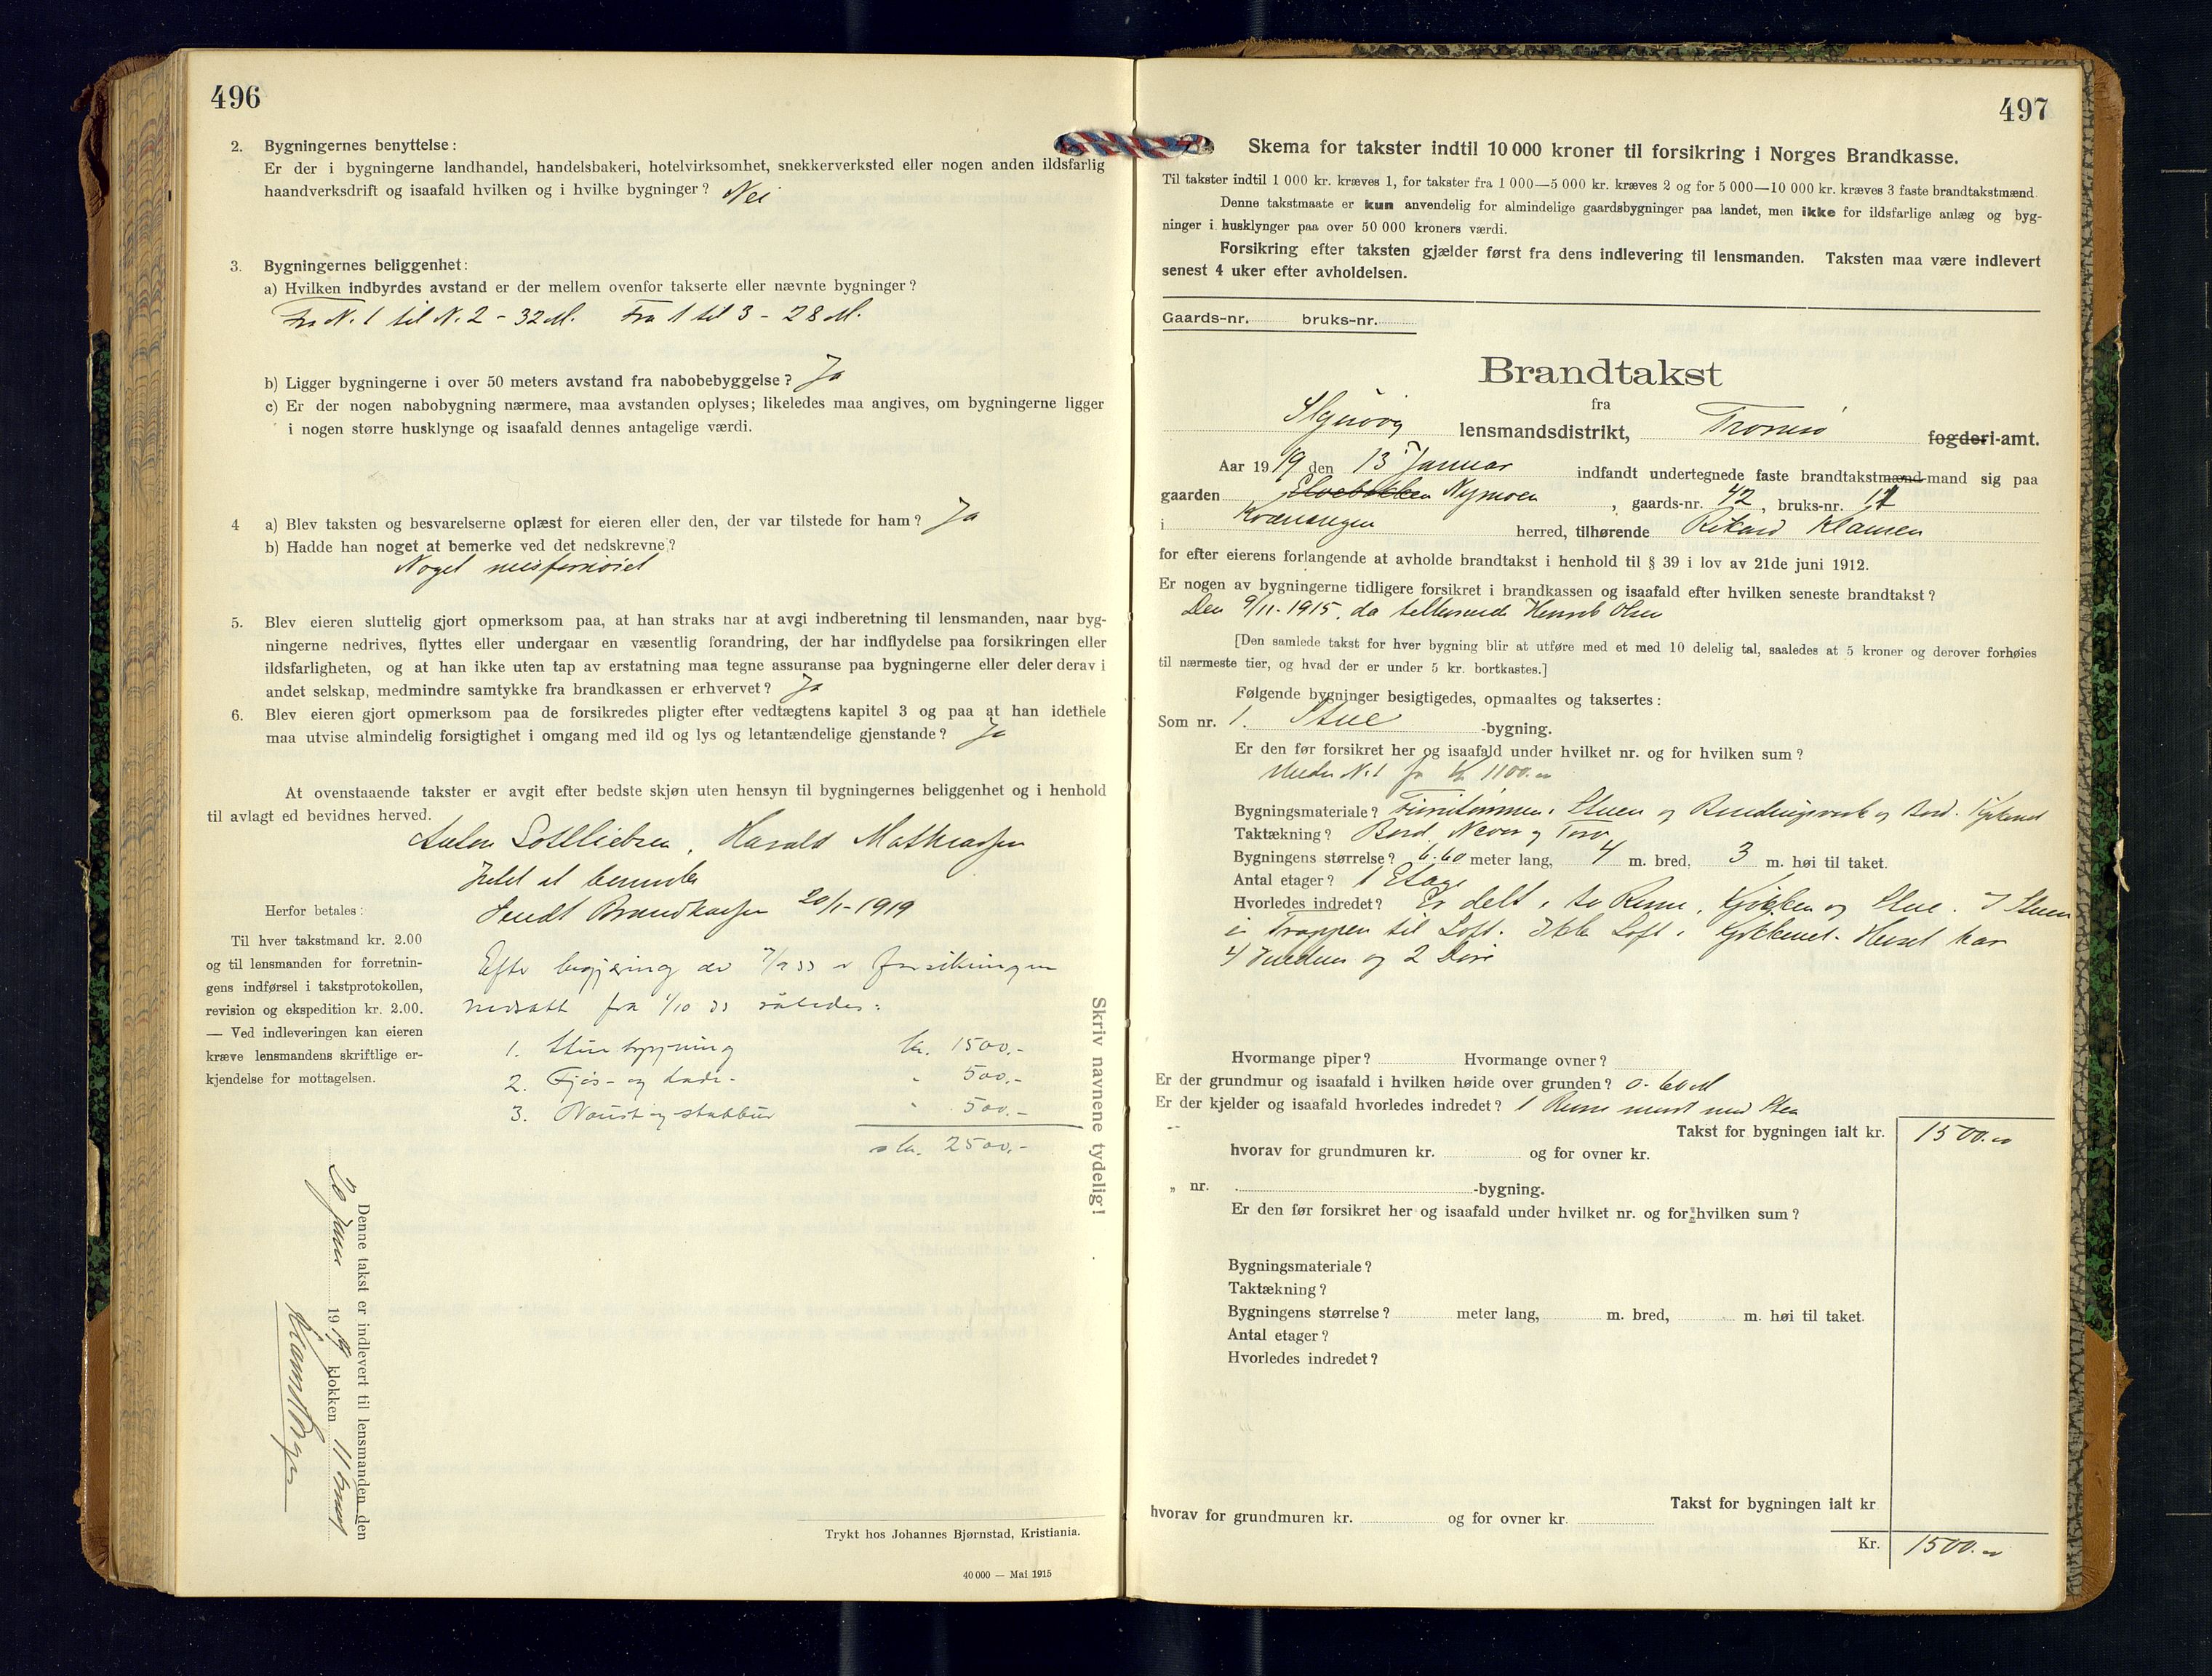 496
2. Bygningernes benyttelse:
Er der i bygningerne landhandel, handelsbakeri, hotelvirksomhet, snekkerverksted eller nogen anden ildsfarlig
haandverksdrift og isaafald hvilken og i hvilke bygninger? Nei
3. Bygningernes beliggenhet:
a) Hvilken indbyrdes avstand er der mellem ovenfor takserte eller nævnte bygninger?
Fra N. 1 til N. 2 - 32 M. Fra 1 til 3 - 28 M.
b) Ligger bygningerne i over 50 meters avstand fra nabobebyggelse? Ja
c) Er der nogen nabobygning nærmere, maa avstanden oplyses; likeledes maa angives, om bygningerne ligger
i nogen større husklynge og isaafald dennes antagelige værdi.
4 a) Blev taksten og besvarelserne oplæst for eieren eller den, der var tilstede for ham? Ja
b) Hadde han noget at bemerke ved det nedskrevne?
Noget misfornöiet
5. Blev eieren sluttelig gjort opmerksom paa, at han straks har at avgi indberetning til lensmanden, naar byg-
ningerne nedrives, flyttes eller undergaar en væsentlig forandring, der har indflydelse paa forsikringen eller
ildsfarligheten, og at han ikke uten tap av erstatning maa tegne assuranse paa bygningerne eller deler derav i
andet selskap, medmindre samtykke fra brandkassen er erhvervet? Ja
6. Blev eieren gjort opmerksom paa de forsikredes pligter efter vedtægtens kapitel 3 og paa at han idethele
maa utvise almindelig forsigtighet i omgang med ild og lys og letantændelige gjenstande? Ja
At ovenstaaende takster er avgit efter bedste skjøn uten hensyn til bygningernes beliggenhet og i henhold
til avlagt ed bevidnes herved.
Anton Gottliebsen, Harald Mathiassen
Intet at bemerke
Sendt Brandkassen 20/1-1919
Herfor betales:
Til hver takstmand kr. 2.00
og til lensmanden for forretnin-
gens indførsel i takstprotokollen,
revision og ekspedition kr. 2.00.
— Ved indleveringen kan eieren
kræve lensmandens skriftlige er-
kjendelse for mottagelsen.
Efter begjæring av 7/9 33 er forsikringen
nedsatt fra 1/10 33 således:
1. Stuebygning kr. 1500.-
2. Fjøs- og lade- " 500.-
3. Naust og stabbur " 500.-
kr. 2500.-
Skriv navnene tydelig!
Denne takst er indlevert til lensmanden den
20 Januar 1919 klokken 11
Trykt hos Johannes Bjørnstad, Kristiania.
40 000 — Mai 1915
497
Skema for takster indtil 10 000 kroner til forsikring i Norges Brandkasse.
Til takster indtil 1 000 kr. kræves 1, for takster fra 1 000—5 000 kr. kræves 2 og for 5 000—10 000 kr. kræves 3 faste brandtakstmænd.
Denne takstmaate er kun anvendelig for almindelige gaardsbygninger paa landet, men ikke for ildsfarlige anlæg og byg-
ninger i husklynger paa over 50 000 kroners værdi.
Forsikring efter taksten gjælder først fra dens indlevering til lensmanden. Taksten maa være indlevert
senest 4 uker efter avholdelsen.
Gaards-nr. bruks-nr.
Brandtakst
fra
Skjervöy lensmandsdistrikt, Tromsö fogderi-amt.
Aar 1919 den 13 Januar indfandt undertegnede faste brandtakstmænd-mand sig paa
gaarden Elvebakken Nymoen, gaards-nr. 42, bruks-nr. 17
i Kvænangen herred, tilhørende Rikard Klausen
for efter eierens forlangende at avholde brandtakst i henhold til § 39 i lov av 21de juni 1912.
Er nogen av bygningerne tidligere forsikret i brandkassen og isaafald efter hvilken seneste brandtakst?
Den 9/11-1915, da tilhörende Henrik Olsen
[Den samlede takst for hver bygning blir at utføre med et med 10 delelig tal, saaledes at 5 kroner og derover forhøies
til nærmeste tier, og hvad der er under 5 kr. bortkastes.]
Følgende bygninger besigtigedes, opmaaltes og taksertes:
Som nr. 1. Stue -bygning.
Er den før forsikret her og isaafald under hvilket nr. og for hvilken sum?
Under N. 1 for Kr 1100.00
Bygningsmateriale? Furutömmer i Stuen og Bindingsverk og Bord i Kjökenet
Taktækning? Bord, Never og Torv
Bygningens størrelse? 6.60 meter lang, 4 m. bred, 3 m. høi til taket.
Antal etager? 1 Etage
Hvorledes indredet? Er delt i to Rum, Kjökken og Stue. I Stuen
er Trappen til Loft. Ikke Loft i Kjökkenet. Huset har
4 Vinduer og 2 Döre
Hvormange piper? Hvormange ovner?
Er der grundmur og isaafald i hvilken høide over grunden? 0.60 M
Er der kjelder og isaafald hvorledes indredet? 1 Rum muret med Sten
Takst for bygningen ialt kr. 1500.00
hvorav for grundmuren kr. og for ovner kr.
„ nr. -bygning.
Er den før forsikret her og isaafald under hvilket nr. og for hvilken sum?
Bygningsmateriale?
Taktækning?
Bygningens størrelse? meter lang, m. bred, m. høi til taket.
Antal etager?
Hvorledes indredet?
Takst for bygningen ialt kr
hvorav for grundmuren kr. og for ovner kr.
Kr. 1500.00